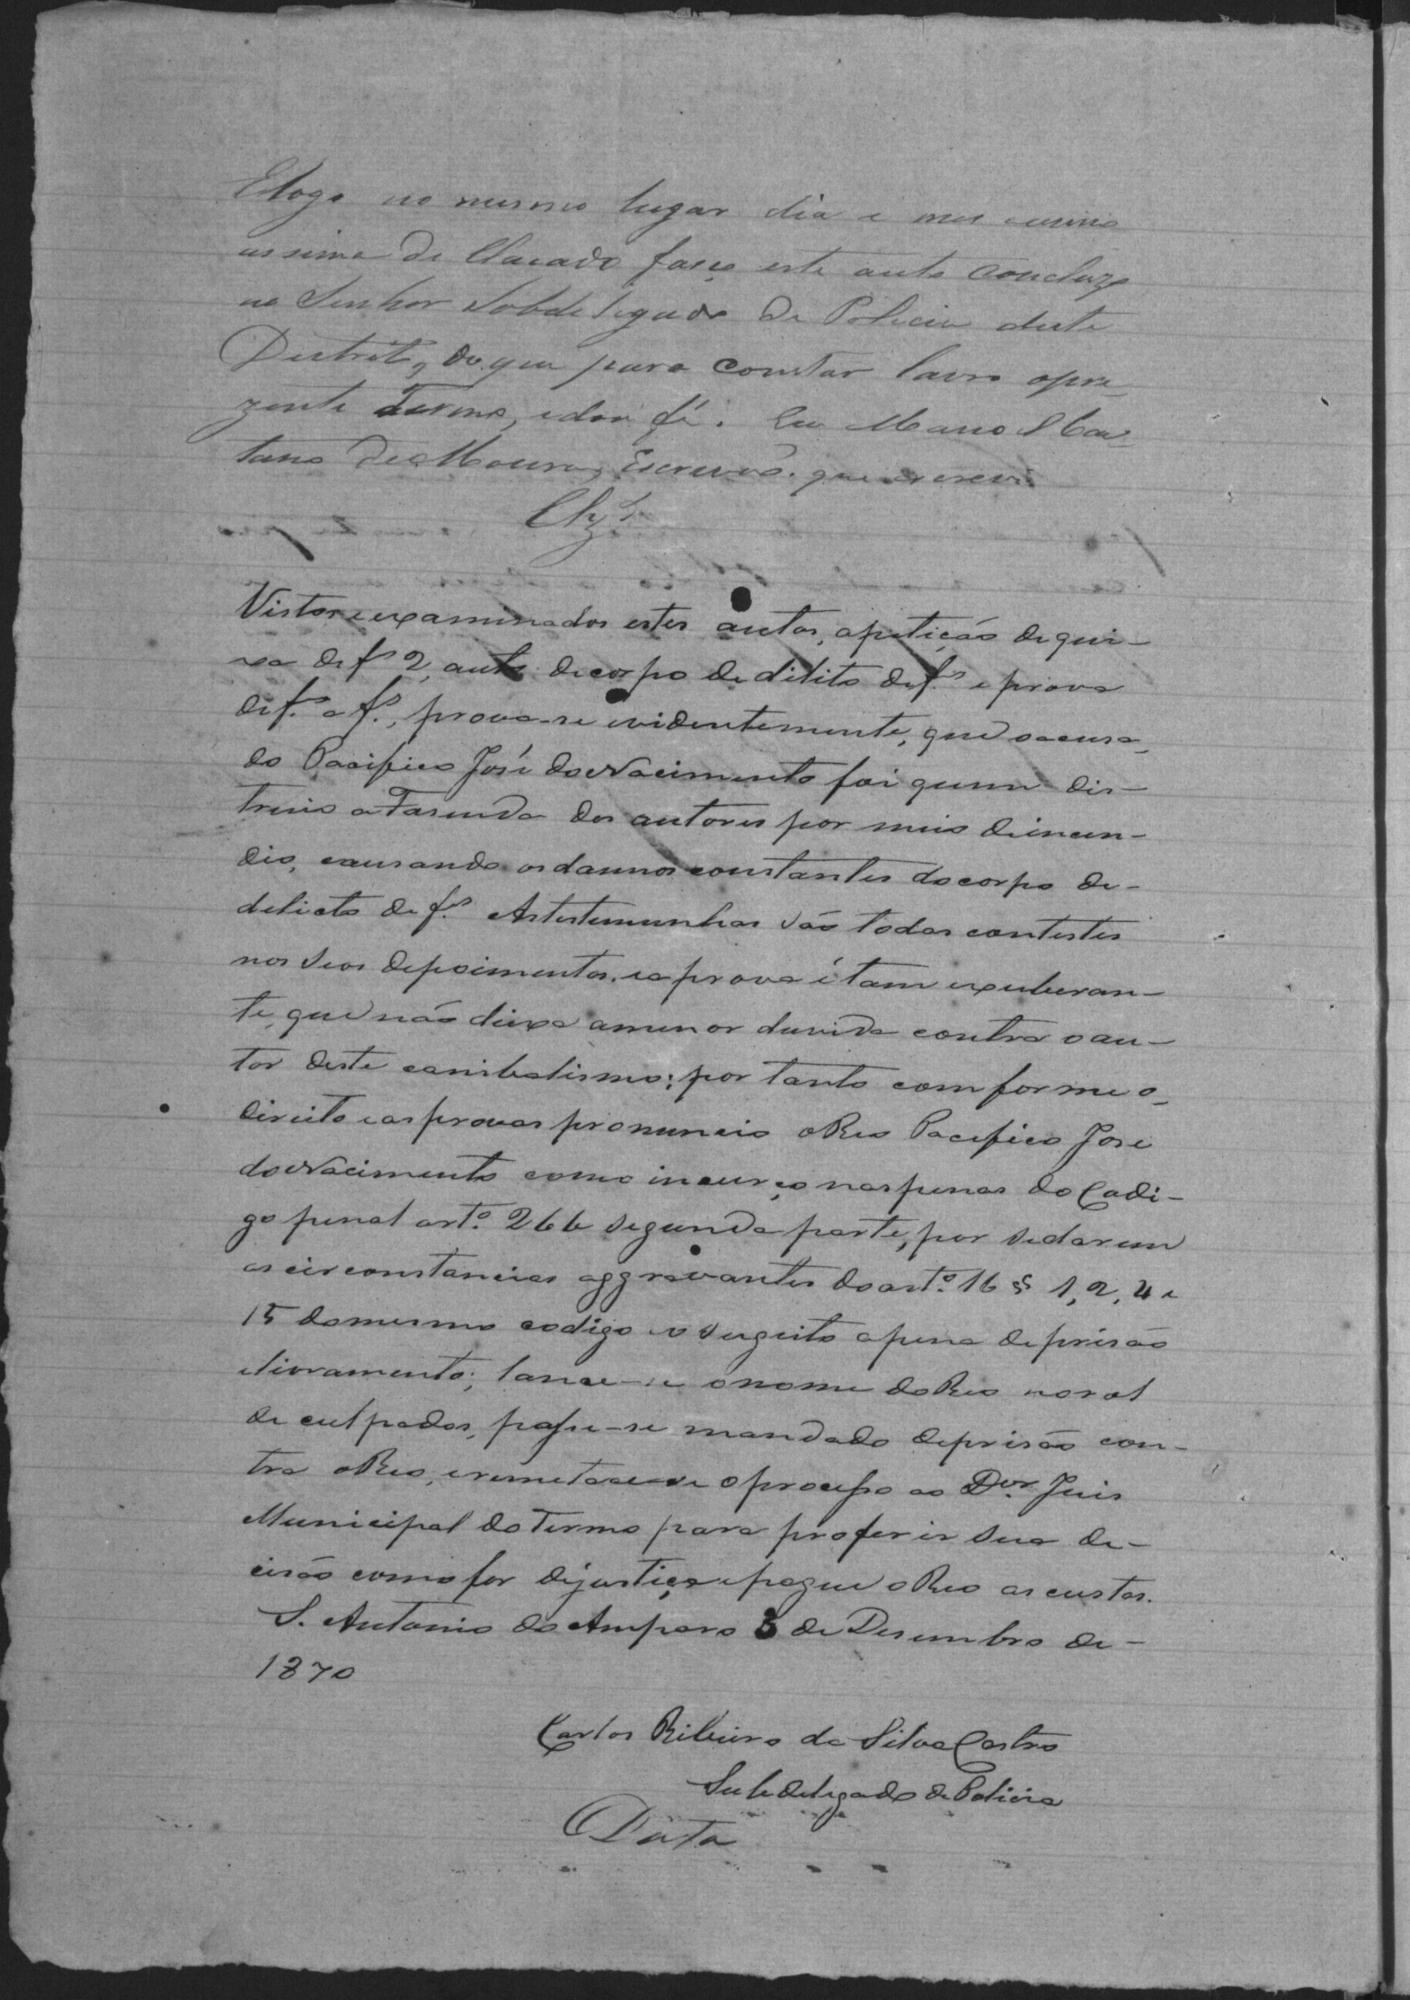 E logo no mesmo lugar dia e mes e anno
assima de Clarado faço este auto Concluzo
ao Senhor Sobdelegado de Policia deste
Destrito, do que para constar lavro opre_
zente Termo, e dou fé. Eu Manoel Cae
tano de Moura, Escrevão que escrevi
Clz.º
Vistos e examinados estes autos, a petição de quei-
xa de fs 2, auto de corpo de dilito de fs e prova
de fs a fs, prova-se evidentemente, que o acusa_
do Pacifico José do Nacimento foi quem dis-
truio a Fasenda dos autores por meio de incen-
dio, causando os damnos constantes do corpo de-
delicto de fs. As testemunhas são todas contestes
nos seos depoimentos, e a prova é tam exuberan-
te, que não deixa a menor duvida contra o au-
tor deste canibalismo; por tanto com forme o_
direito e as provas pronuncio o Reo Pacifico Jose
do Nacimento como incurço nas penas do Codi-
go penal art.º 266 segunda parte, por se darem
as circonstancias aggravantes do art.º 16 § 1, 2, 4 e
15 do mesmo codigo e o sugeito a pena de prisão
e livramento; lance-se o nome do Reo no rol
de culpados, passe-se mandado de prisão con-
tra o Reo, e remeta-se o processo ao Dor. Juis
Municipal do Termo para proferir sua de-
cisão como for de justiça e pague o Reo as custas.
S. Antonio do Amparo 3 de Desembro de-
1870
Carlos Ribeiro da Silva Castro
Subdelegado de Policia
Data